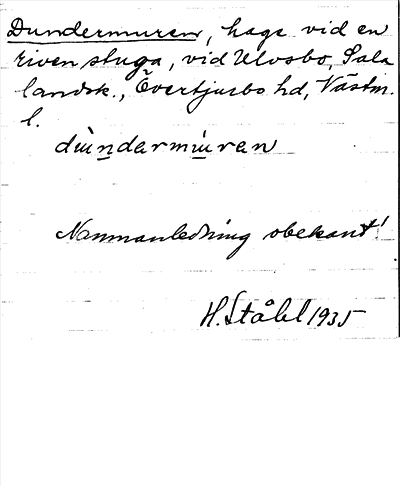 Dundermuren, hage vid en
riven stuga, vid Ulvsbo, Sala
landsk., Övertjurbo hd, Västm.
l.
dùndarmùran
Namnanledning obekant!
H. Ståhl 1935